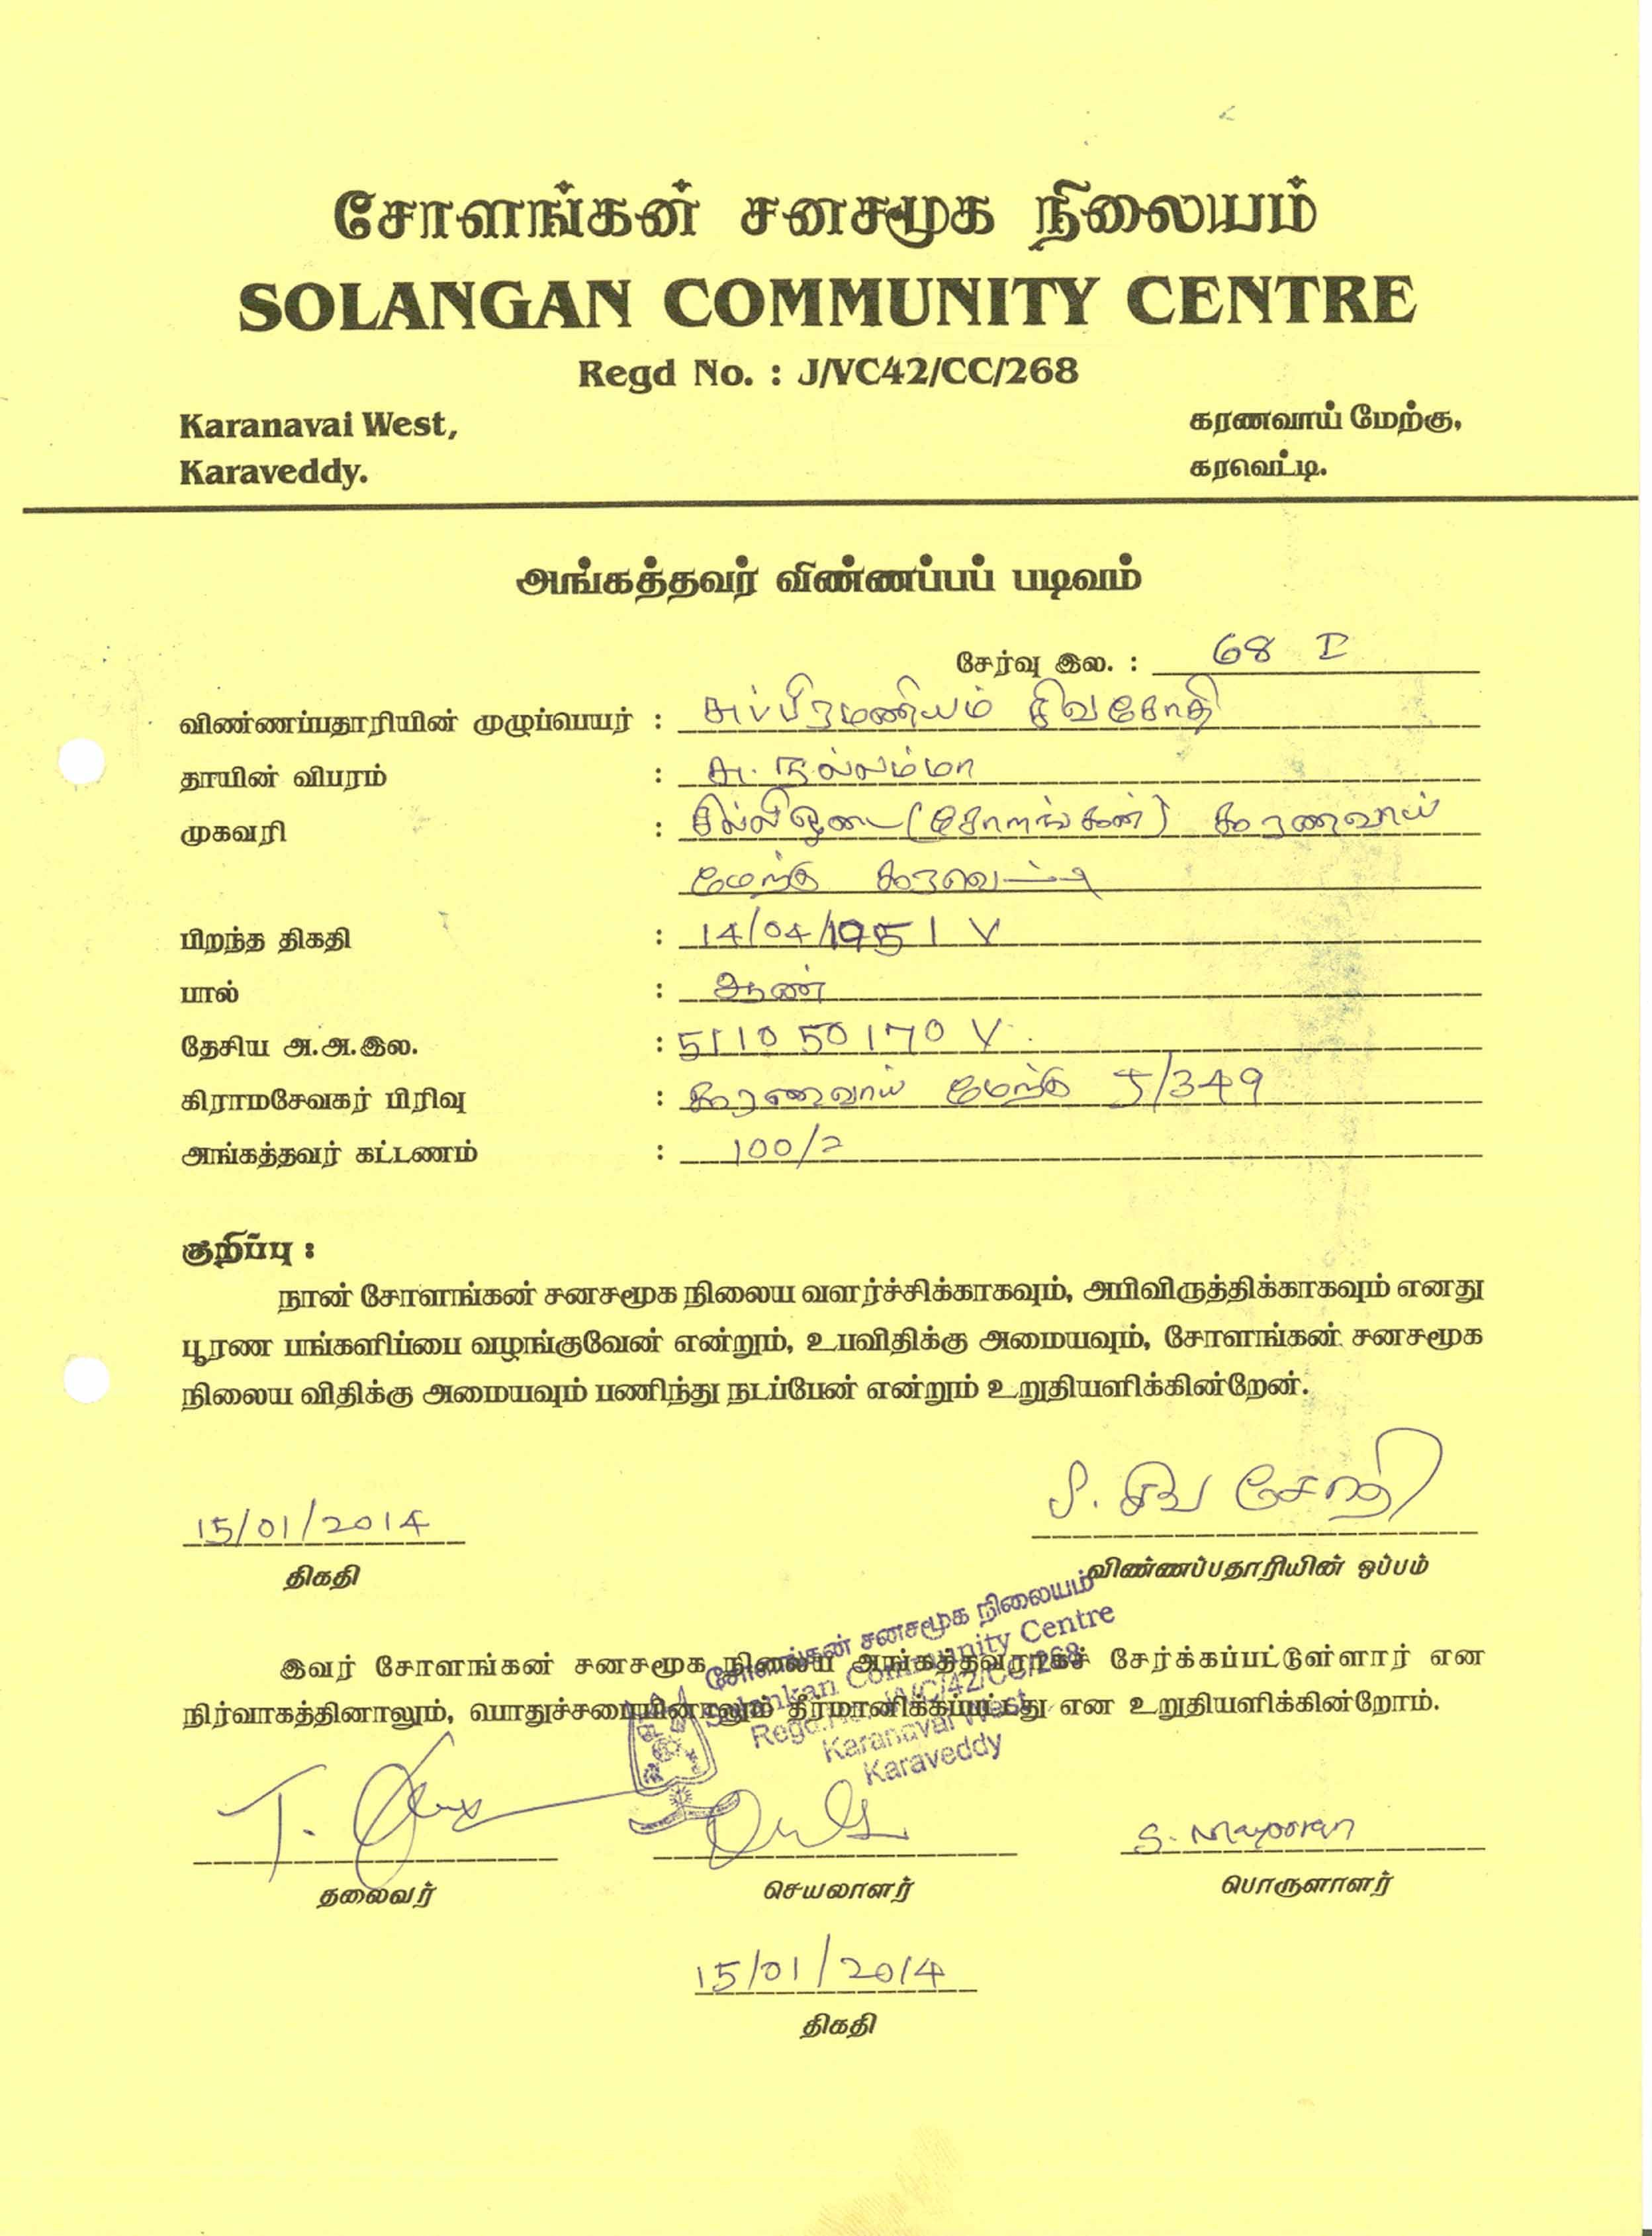 சோளங்கன் சனசமூக நிலையம்
SOLANGAN COMMUNITY CENTRE
Regd No. : J/VC42/CC/268
Karanavai West,
கரணவாய் மேற்கு,
Karaveddy.
கரவெட்டி.
அங்கத்தவர் விண்ணப்பப் படிவம்
சேர்வு இல. : 68 I
விண்ணப்பதாரியின் முழுப்பெயர் : சுப்பிரமணியம் சிவசோதி
தாயின் விபரம் : சு. நல்லம்மா
முகவரி : (சோளங்கன்) கரணவாய்
மேற்கு கரவெட்டி
பிறந்த திகதி : 14/04/1951 V
பால் : ஆண்
தேசிய அ.அ.இல. : 511050170 V.
கிராமசேவகர் பிரிவு : கரணவாய் மேற்கு J/349
அங்கத்தவர் கட்டணம் : 100/=
குறிப்பு :
நான் சோளங்கன் சனசமூக நிலைய வளர்ச்சிக்காகவும், அபிவிருத்திக்காகவும் எனது
பூரண பங்களிப்பை வழங்குவேன் என்றும், உபவிதிக்கு அமையவும், சோளங்கன் சனசமூக
நிலைய விதிக்கு அமையவும் பணிந்து நடப்பேன் என்றும் உறுதியளிக்கின்றேன்.
15/01/2014
சி. சிவசோதி
திகதி
விண்ணப்பதாரியின் ஒப்பம்
சோளங்கன் சனசமூக நிலையம்
Solankan Community Centre
Regd.No. J/VC/42/CC/268
Karanavai West
Karaveddy
இவர் சோளங்கன் சனசமூக நிலைய அங்கத்தவராகச் சேர்க்கப்பட்டுள்ளார் என
நிர்வாகத்தினாலும், பொதுச்சபையினாலும் தீர்மானிக்கப்பட்டது என உறுதியளிக்கின்றோம்.
S. Mayooran
தலைவர்
செயலாளர்
பொருளாளர்
15/01/2014
திகதி